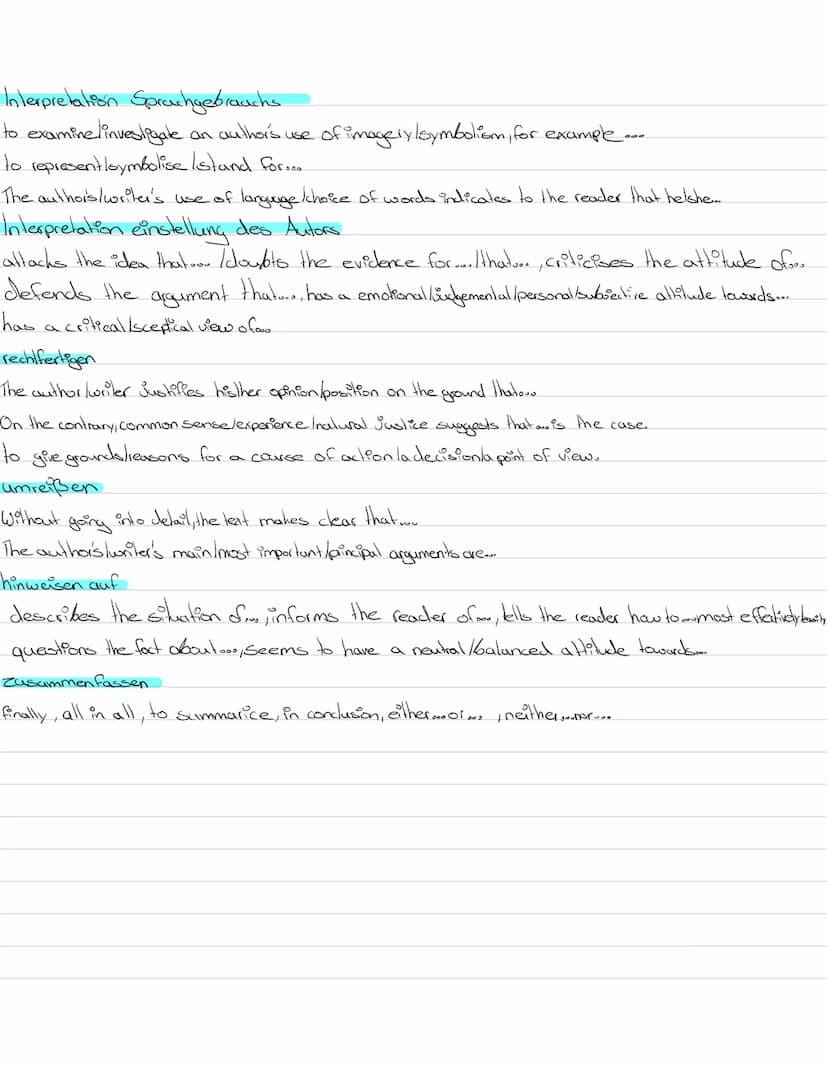 Interpretation Sprachgebrauchs
to examine/investigate an author's use of imagery/symbolism, for example ...
to represent/symbolise/stand for...
The author's/writer's use of language/choice of words indicates to the reader that he/she...
Interpretation einstellung des Autors
attacks the idea that.../doubts the evidence for.../that..., criticises the attitude of...
defends the argument that..., has a emotional/judgemental/personal/subjective attitude towards...
has a critical/sceptical view of...
rechtfertigen
The author/writer justifies his/her opinion/position on the ground that...
On the contrary, common sense/experience/natural justice suggests that...is the case.
to give grounds/reasons for a course of action/a decision/a point of view.
umreißen
Without going into detail, the text makes clear that...
The author's/writer's main/most important/principal arguments are...
hinweisen auf
describes the situation of..., informs the reader of..., tells the reader how to...most effectively/
questions the fact about..., seems to have a neutral/balanced attitude towards...
zusammenfassen
finally, all in all, to summarice, in conclusion, either...or..., neither...nor...